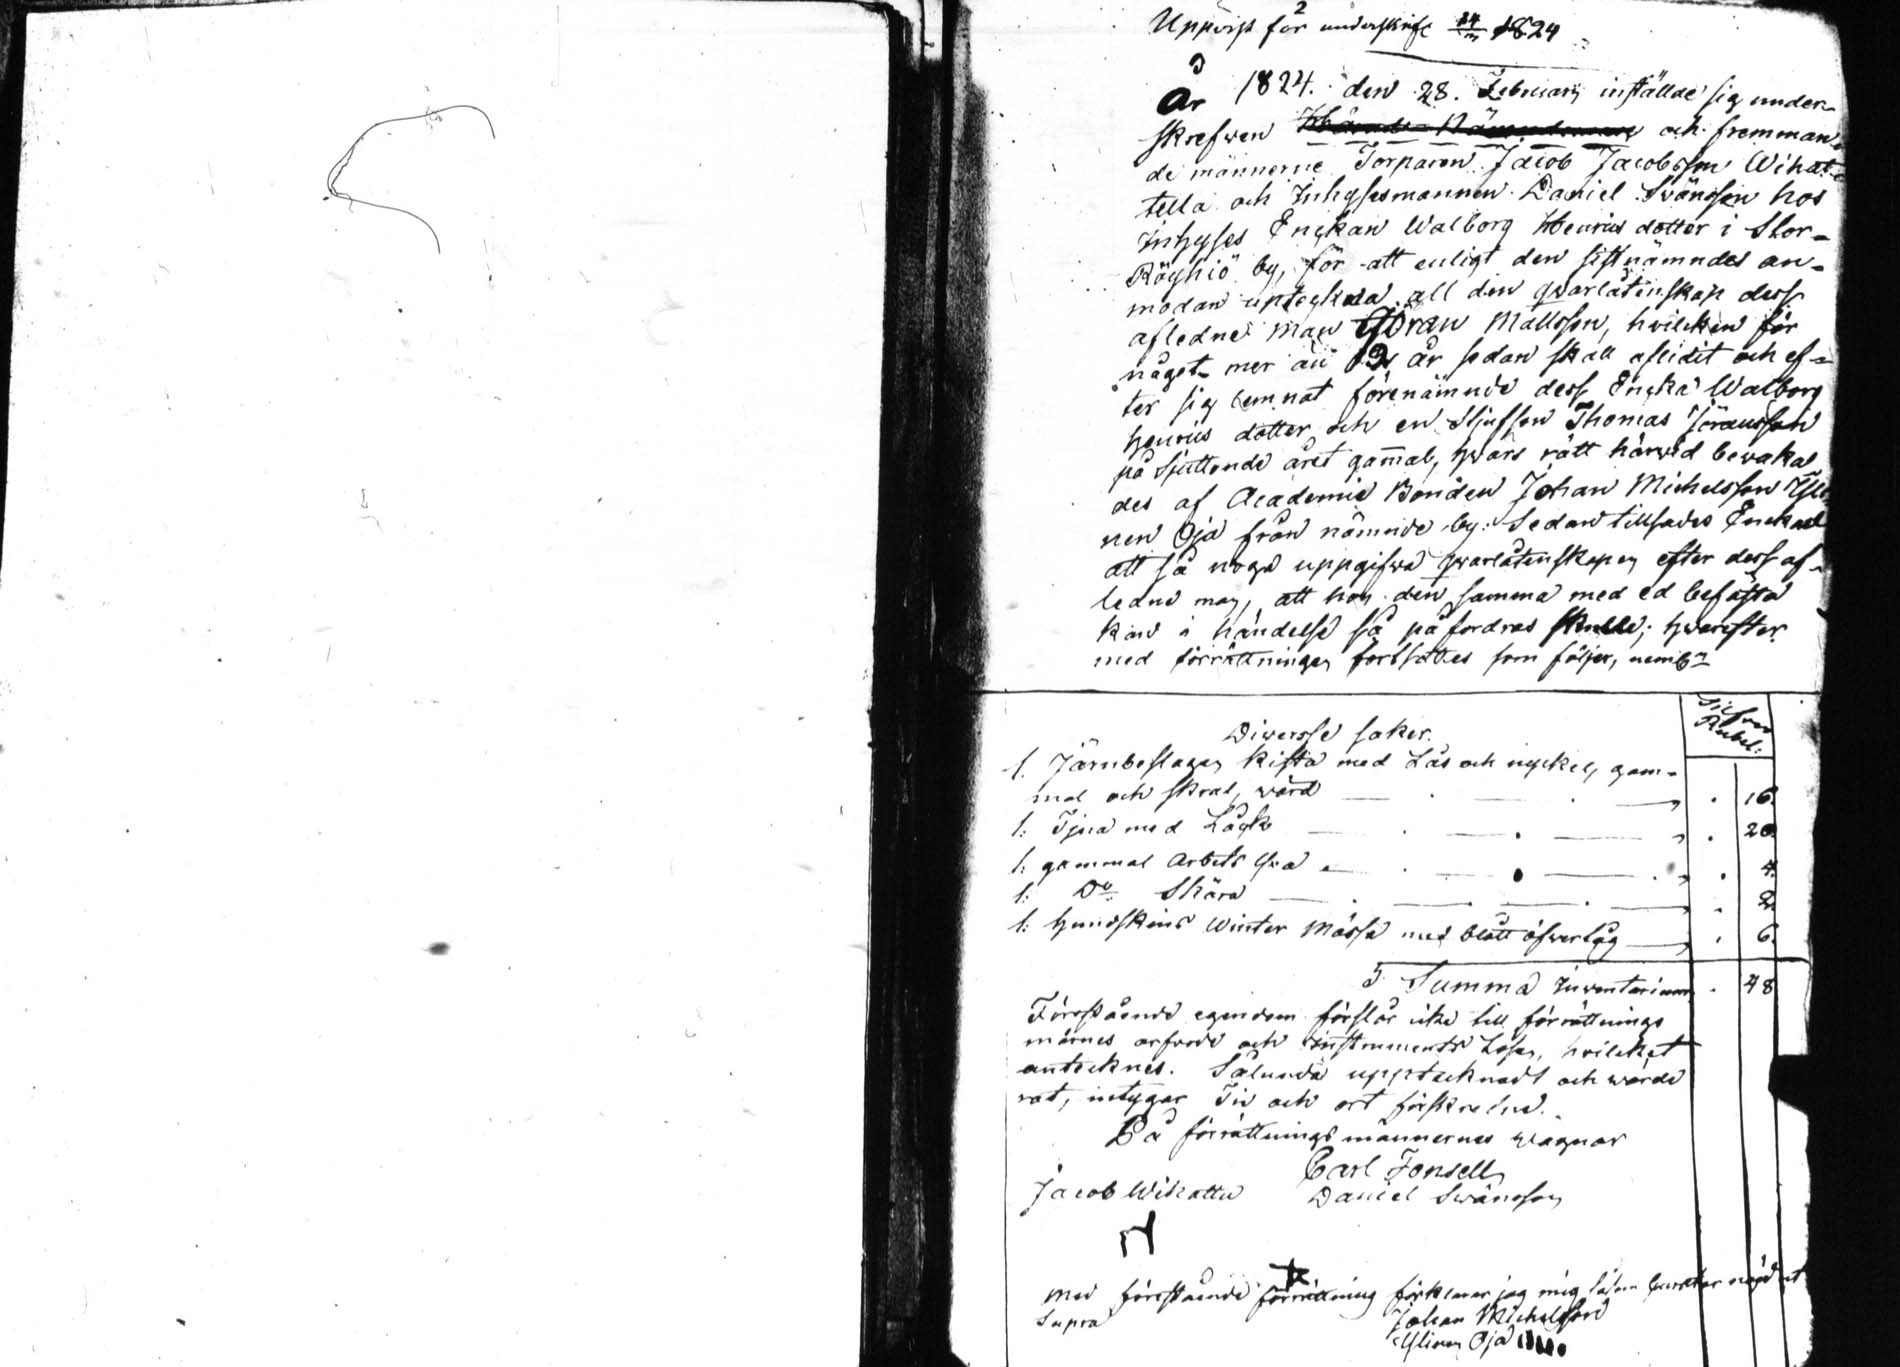 Uppvist för underskrift 24/m 1824
År 1824. den 28. Februarij instälde sig under-
skrefwen och fremman-
de männerne Torparen Jacob Jacobsson Wihat-
tella och Inhysesmannen Daniel Svänsson hos
Inhyses Enckan Walborg Henrics dotter i Stor-
Röyhiö by, för att enligt den sistnämndes an-
modan upteckna all den qwarlåtenskap dess
afledne man Göran Mattsson, hvilcken för
något mer än 12 år sedan skall aflidit och ef-
ter sig lemnat förenämnde dess Encka Walborg
Henrics dotter och en Stjufson Thomas Jöransson
på sjuttonde året gam̅al, hwars rätt härwid bevaka-
des af Academie Bonden Johan Michelsson Yli-
nen Oja från nämnde by: Sedan tillsades Enckan
att så noga uppgifwa qwarlåtenskapen efter dess af-
ledne man, att hon den samma med ed befästa
kan i händelse så påfordras skulle; hwarefter
med förrättningen fortsattes som följer, neml:
Silfver
Rubel:
Diversse saker.
1. Järnbeslagen kista med Lås och nyckel, gam-
mal och skral, värd " . 16.
1: Tjna med Låck " . 20.
1: gammal Arbets yxa " . 4.
1: Do Skära " . 2.
1: Hundskins Winter Mössa med blått öfwertåg " . 6.
Summa Inventarium . 48
Förestående egendom förslår icke till förrättnings
männes arfvode och instruments Lösen, hvilcket
antecknes. Sålunda upptecknadt och wärde
rat, intygar Tid och ort förskrefne.
På förrättningsmännernes wägnar
Carl Fonsell
Jacob Wihattu Daniel Swänsson
Med förestående förrättning förklarar jag mig nögd ut
Supra
Johan Michelsson
Ylinen Oja